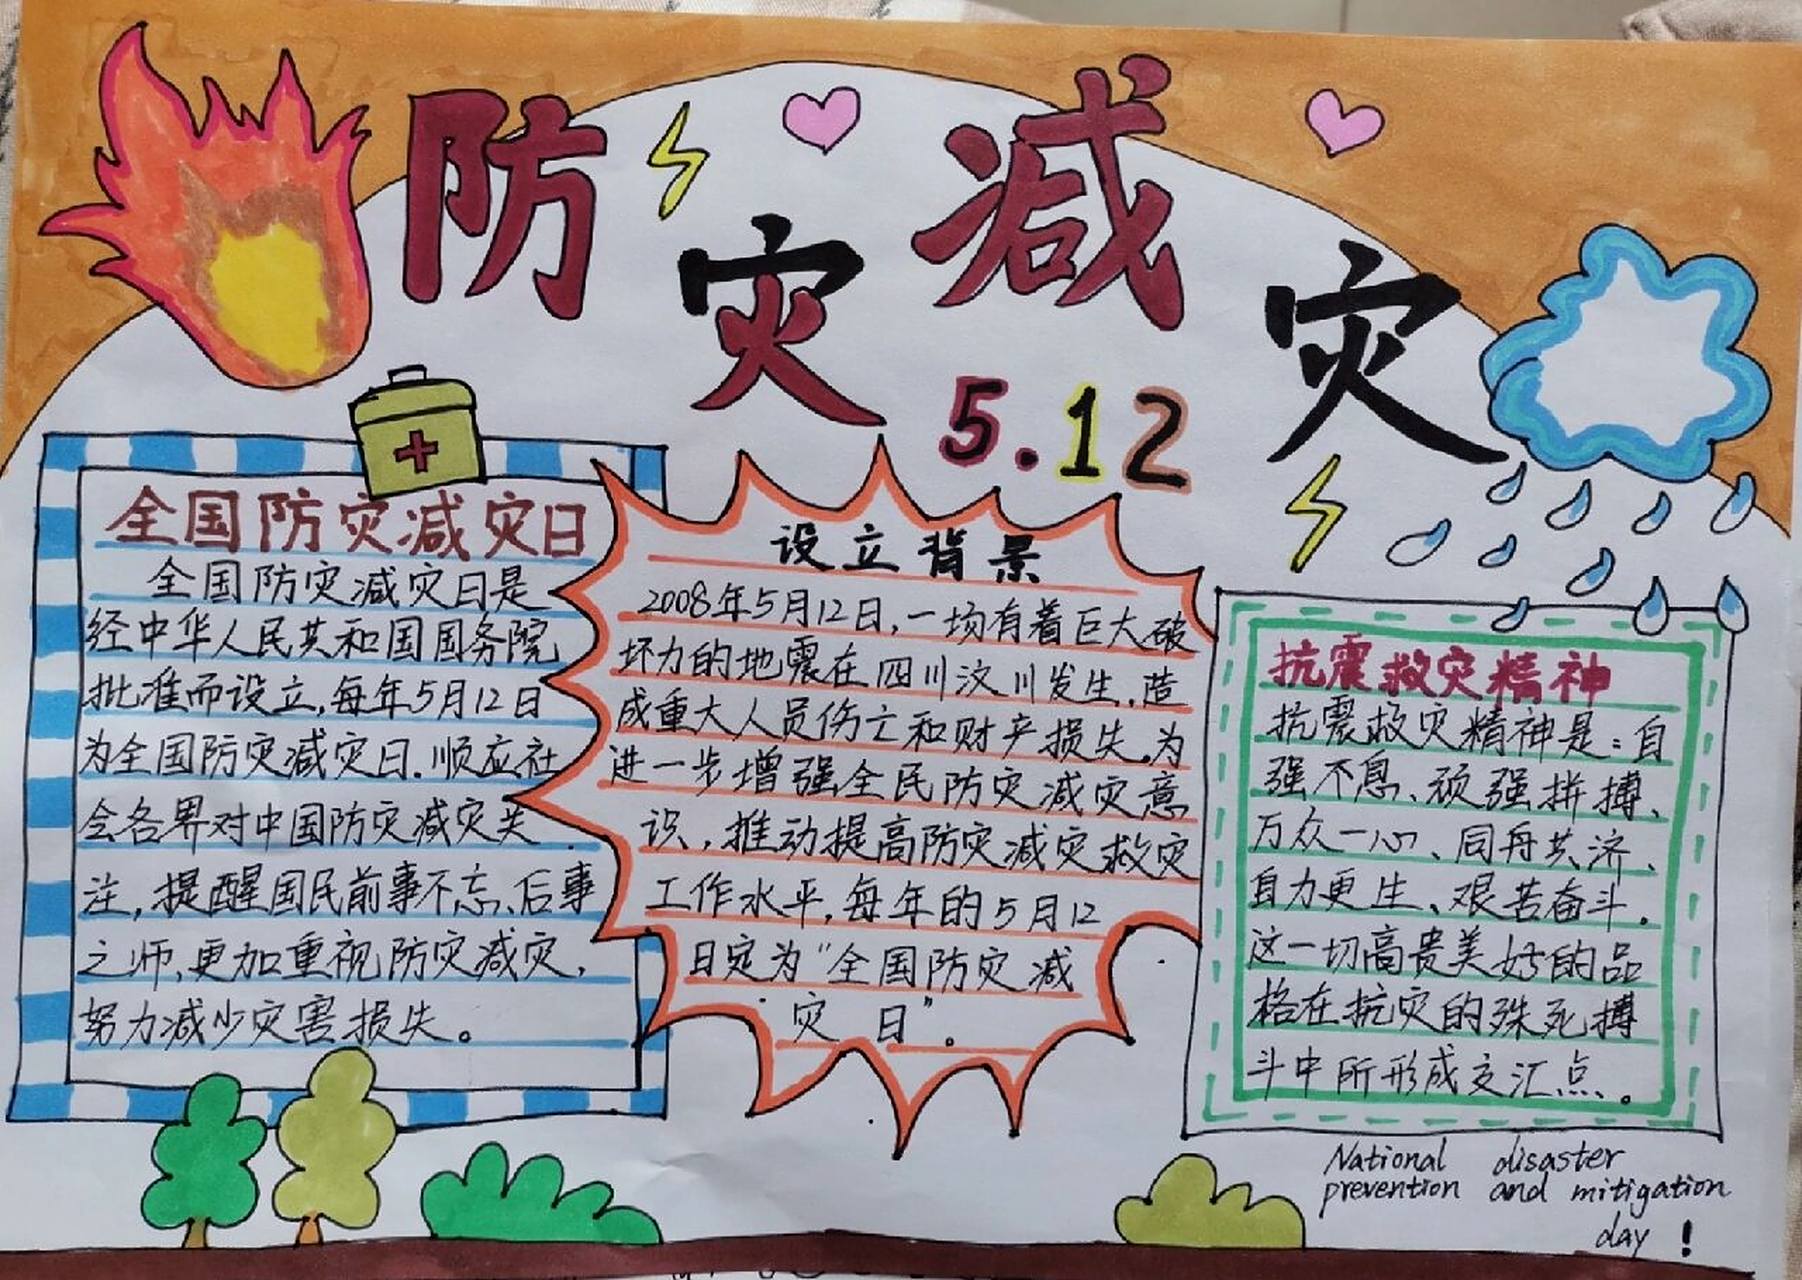 防灾减灾
5.12
全国防灾减灾日
全国防灾减灾日是
经中华人民共和国国务院
批准而设立,每年5月12日
为全国防灾减灾日.顺应社
会各界对中国防灾减灾关
注,提醒国民前事不忘、后事
之师,更加重视防灾减灾,
努力减少灾害损失。
设立背景
2008年5月12日,一场有着巨大破
坏力的地震在四川汶川发生.造
成重大人员伤亡和财产损失.为
进一步增强全民防灾减灾意
识,推动提高防灾减灾救灾
工作水平,每年的5月12
日定为“全国防灾减
灾日”。
抗震救灾精神
抗震救灾精神是:自
强不息、顽强拼搏、
万众一心、同舟共济、
自力更生、艰苦奋斗.
这一切高贵美好的品
格在抗灾的殊死搏
斗中所形成交汇点。
National disaster
prevention and mitigation
day !